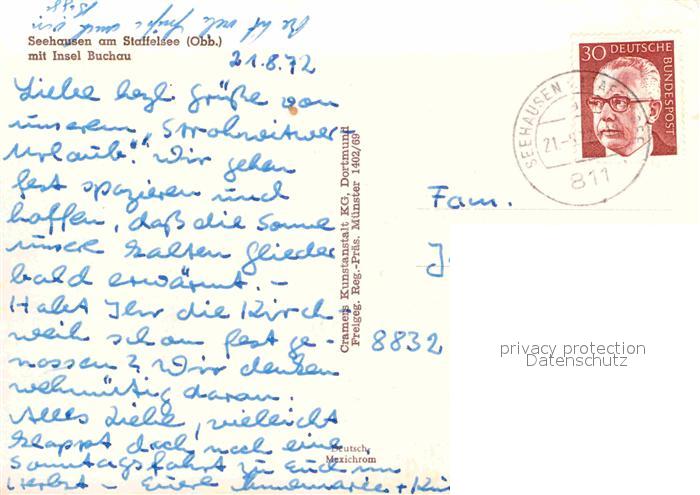 Seehausen am Staffelsee (Obb.)
mit Insel Buchau
21.8.72
Liebe hzl. Grüße von
unserem "Strohwitwer-
Urlaub". Wir gehen
fest spazieren und
hoffen, daß die Sonne
unsere kalten Glieder
bald erwärmt. –
Habt Ihr die Kirch-
weih schon fest ge-
nossen? Wir denken
wehmütig daran.
Alles Liebe, vielleicht
klappt doch noch eine
Sonntagsfahrt zu Euch im
Herbst – Eure Annemarie +
Cramers Kunstanstalt KG, Dortmund
Freigeg. Reg.-Präs. Münster 1402/69
Deutsch.
Mexichrom
30 DEUTSCHE
BUNDESPOST
SEEHAUSEN
21.-
811
Fam.
8832
privacy protection
Datenschutz